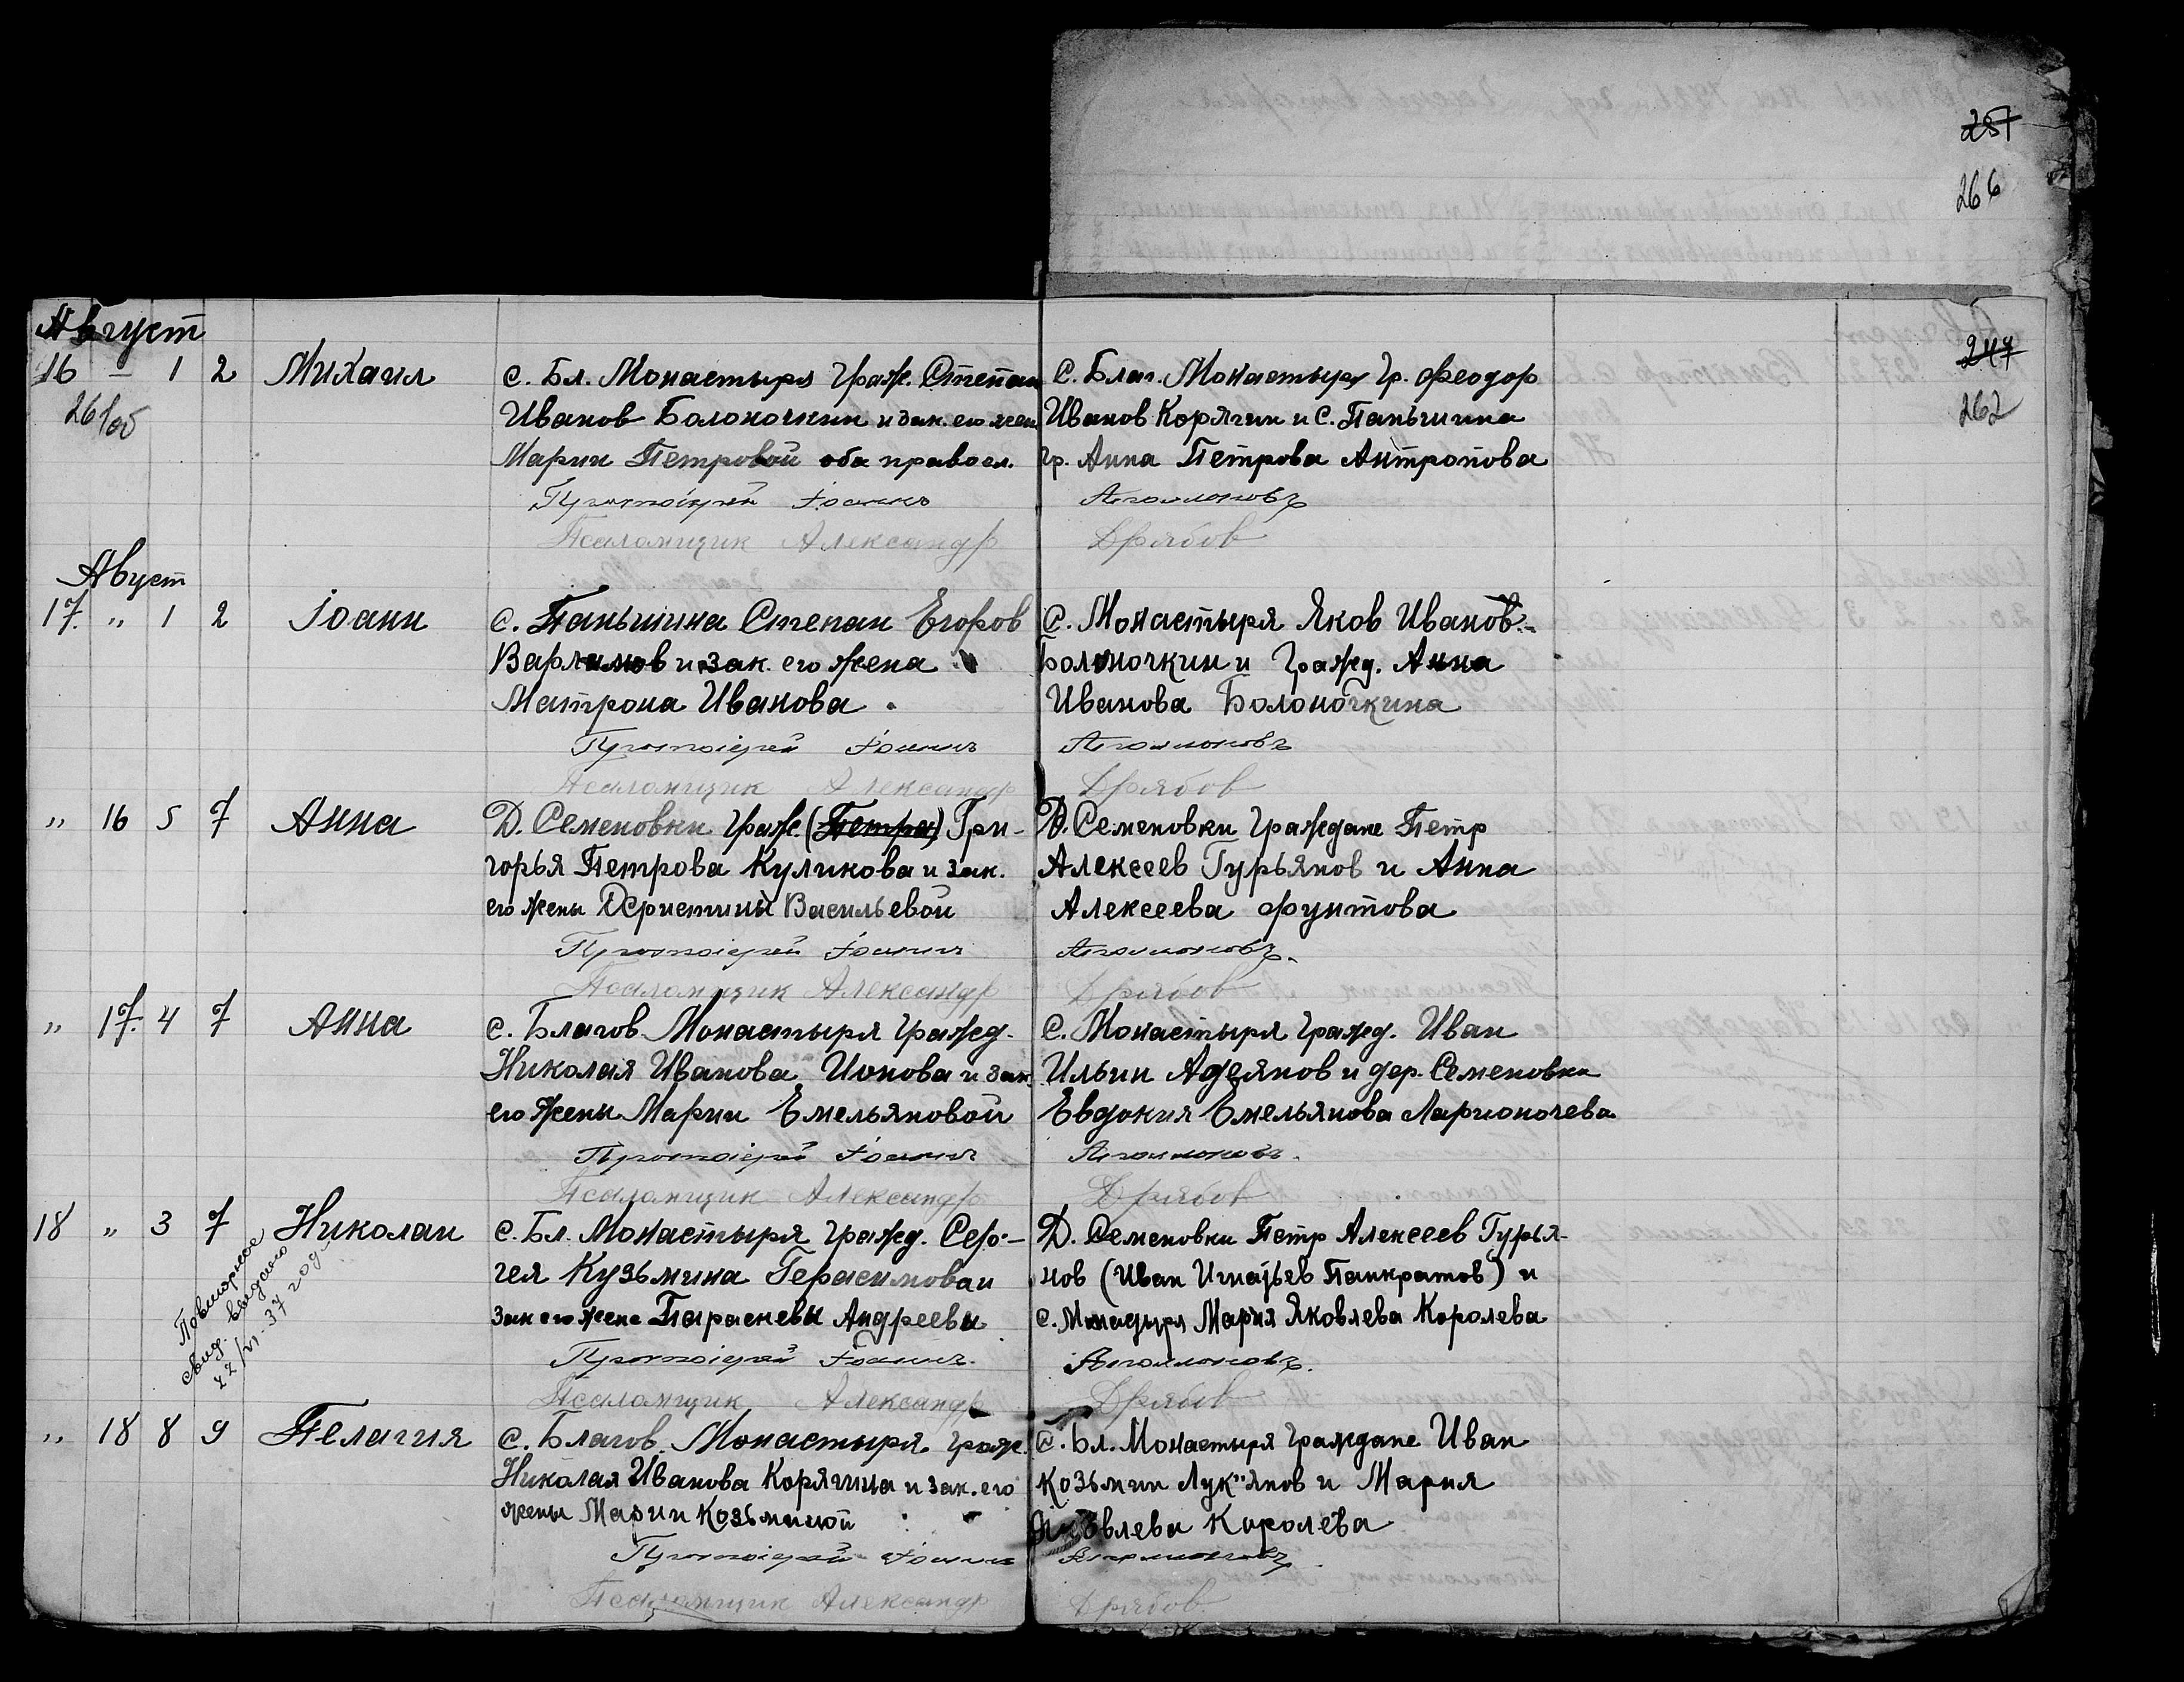 257
266
Август
247
16 — 1 2 Михаил с. Бл. Монастыря Граж. Степан С. Благ. Монастыря Гр. Феодор
261об Иванов Болоночкин и зак. его жен Иванов Корягин и С. Паньшина 262
Марии Петровой оба правосл. Гр. Анна Петрова Антропова
Протоіерей Іоаннъ Аполлоновъ
Псаломщик Александр Дрябов
Август
17. " 1 2 Іоанн с. Паньшина Степан Егоров С. Монастыря Яков Иванов
Варламов и зак. его жена Болоночкин и Гражд. Анна
Матрона Иванова Иванова Болоночкина
Протоіерей Іоаннъ Аполлоновъ
Псаломщик Александр Дрябов
" 16 5 7 Анна Д. Семеновки Граж. (Петра) Гри- Д. Семеновки Граждане Петр
горья Петрова Куликова и зак. Алексеев Гурьянов и Анна
его жены Васильевой Алексеева Фунтова
Протоіерей Іоаннъ Аполлоновъ.
Псаломщик Александр Дрябов
" 17. 4 7 Анна с. Благов. Монастыря Гражд. С. Монастыря Гражд. Иван
Николая Иванова Ионова и зак Ильин Адеянов и дер. Семеновки
его жены Марии Емельяновой Евдокия Емельянова Ларионочева
Протоіерей Іоаннъ Аполлоновъ.
Псаломщик Александр Дрябов
18 " 3 7 Николаи с. Бл. Монастыря Гражд. Сер- Д. Семеновки Петр Алексеев Гурья-
гея Кузьмина Герасимова и нов (Иван Игнатьев Панкратов) и
зак его жена Параскевы Андреевы с. Мария Яковлева Королева
Повторное
свид. выдано
22/VI-37 год
Протоіерей Іоаннъ. Аполлоновъ.
Псаломщик Александр Дрябов
" 18 8 9 Пелагия С. Благов. Монастыря Граж. С. Бл. Монастыря Граждане Иван
Николая Иванова Корягина и зак. его Козьмин Лук"янов и Мария
жены Марии Козьминой Яковлева Королева
Протоіерей Іоаннъ Аполлоновъ
Псаломщик Александр Дрябов